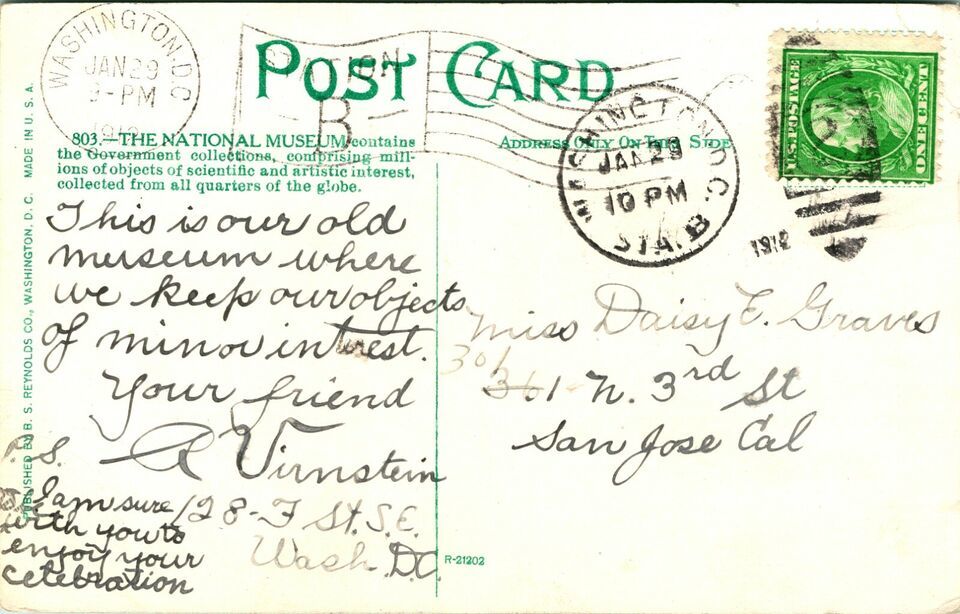 POST CARD
WASHINGTON, D.C.
JAN 29
9-PM
STATION
B
803.—THE NATIONAL MUSEUM contains
the Government collections, comprising mill-
ions of objects of scientific and artistic interest,
collected from all quarters of the globe.
This is our old
museum where
we keep our objects
of minor intrest.
Your friend
A Virnstein
128-F St. S.E.
Wash. D.C.
P.S.
I am sure
with you to
enjoy your
celebration
PUBLISHED BY B. S. REYNOLDS CO., WASHINGTON, D. C. MADE IN U. S. A.
ADDRESS ONLY ON THIS SIDE
WASHINGTON, D.C.
JAN 29
10 PM
STA. B
1912
U.S. POSTAGE
ONE CENT
Miss Daisy E. Graves
301
361 N. 3rd St
San Jose Cal
R-21202